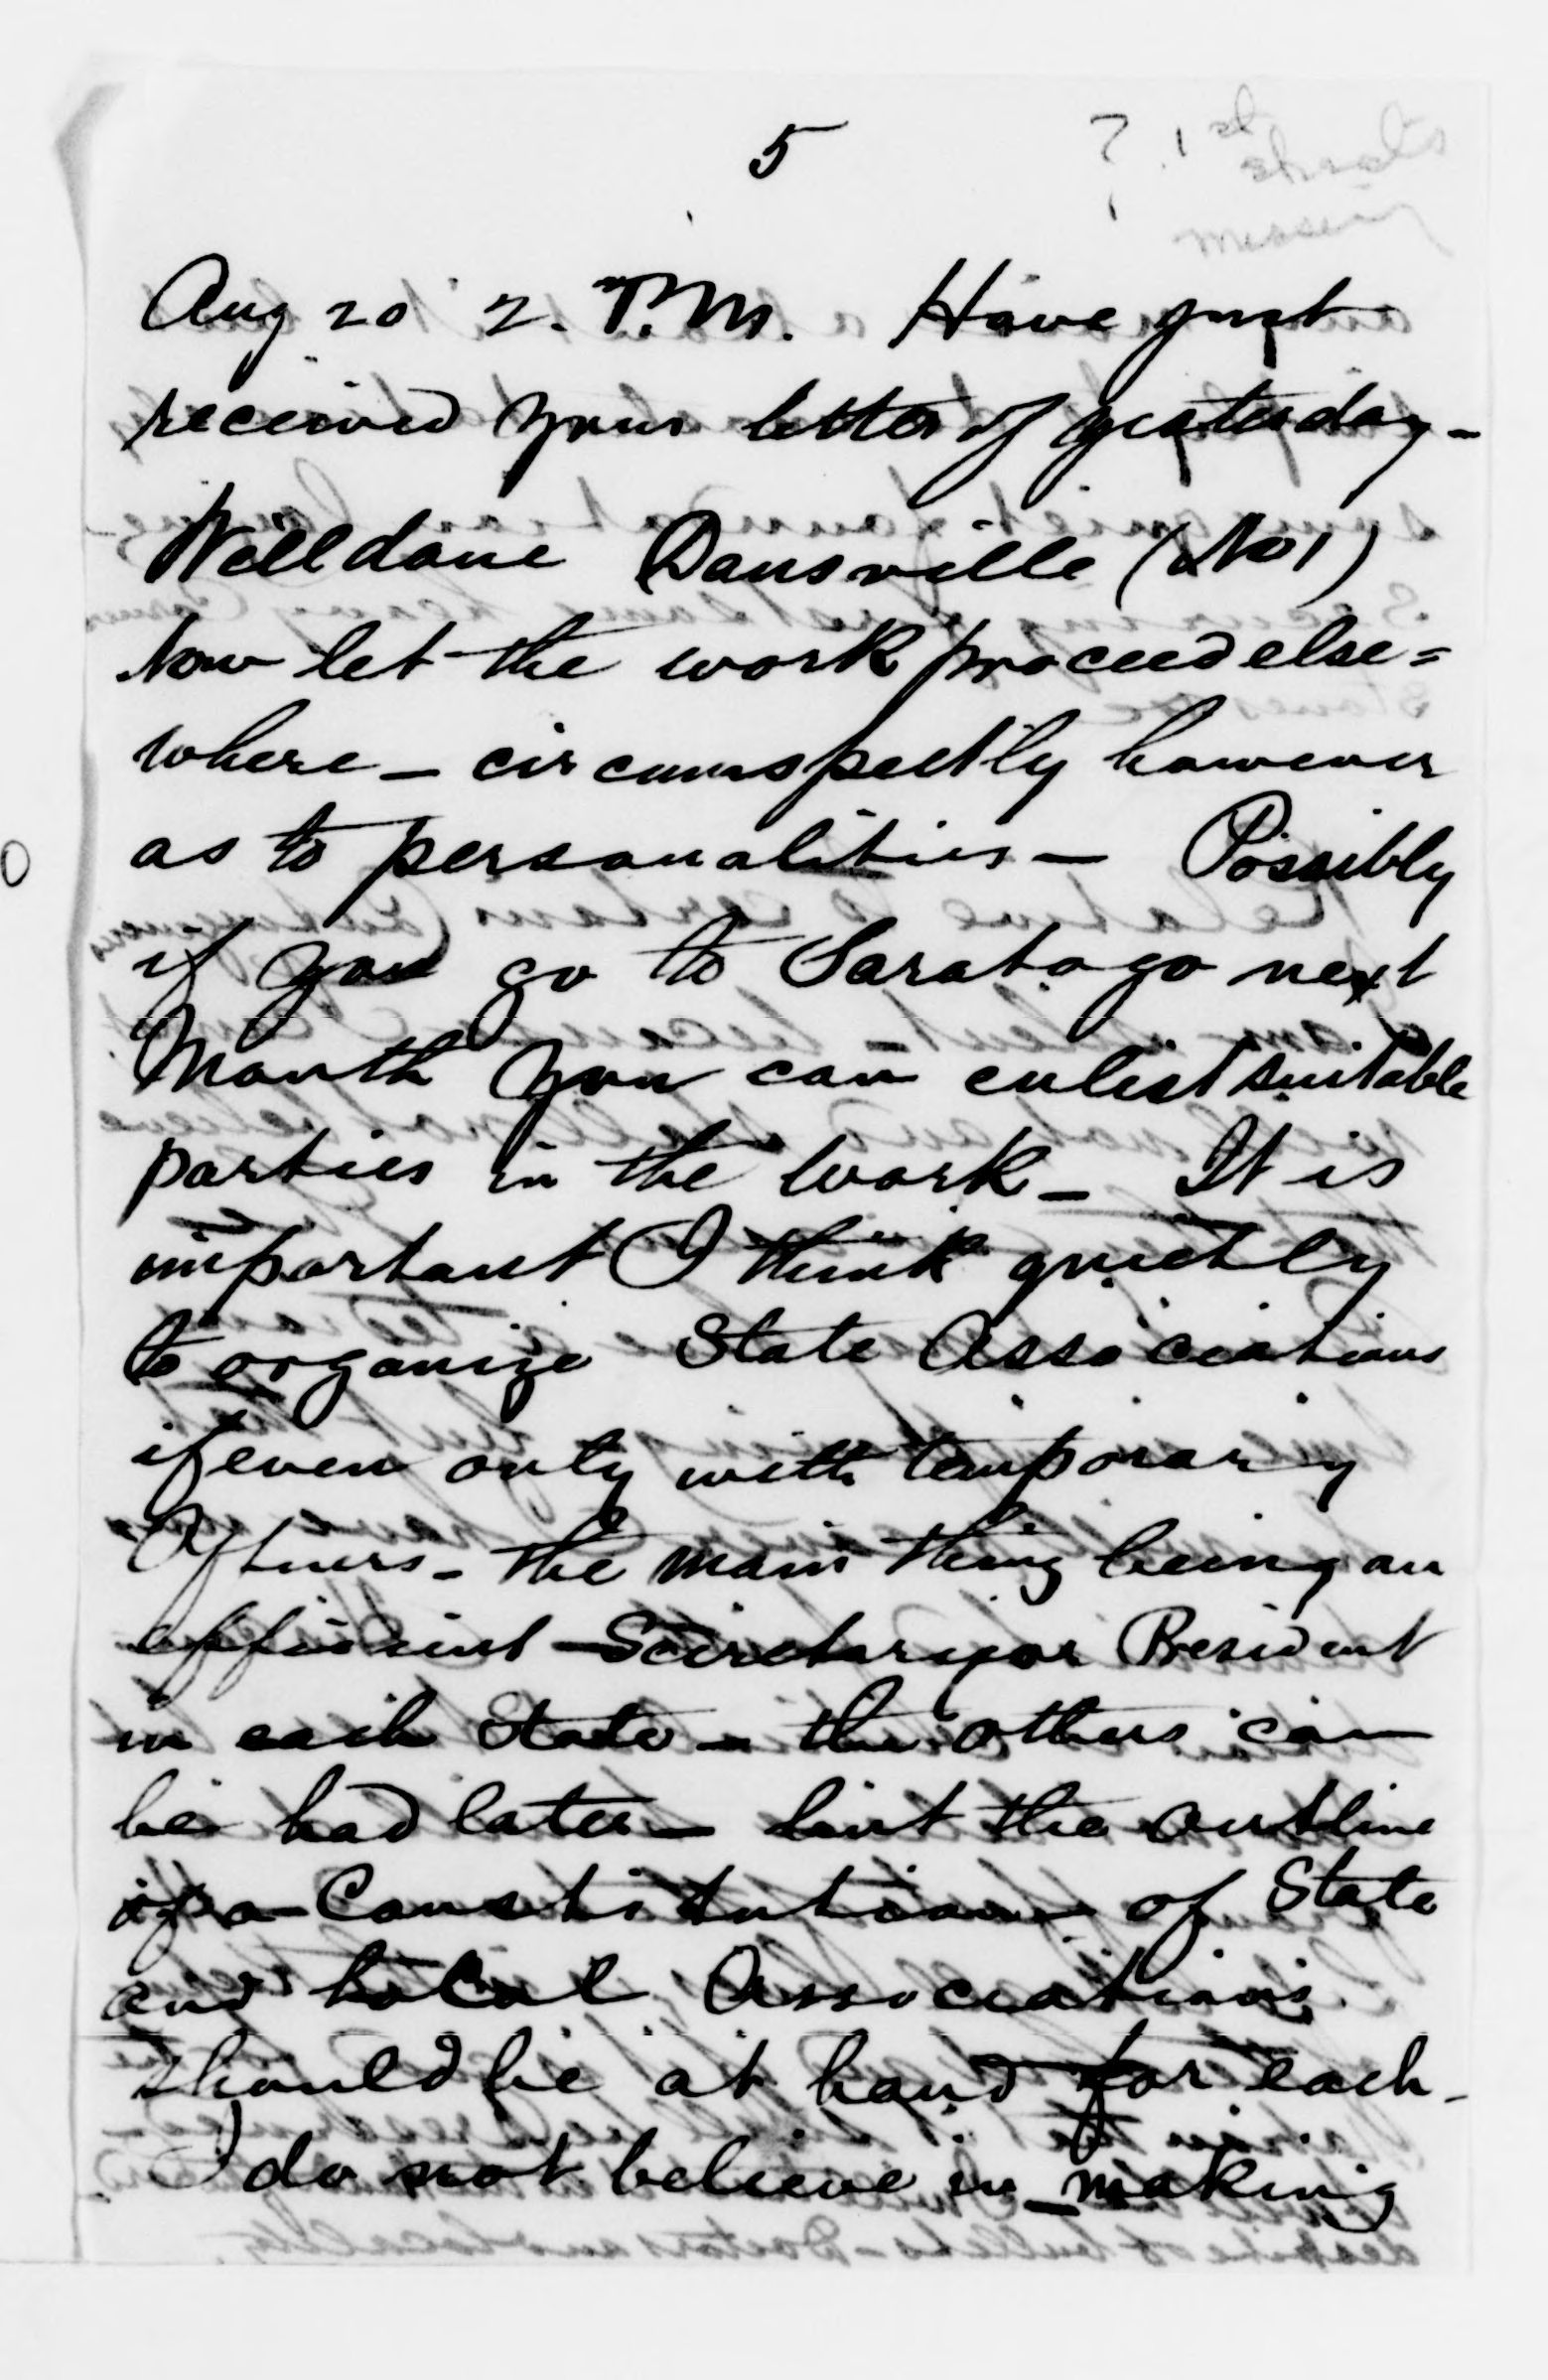 5
Aug 20 2. P.M. Have just
received your letter of yesterday -
Well done Dansville (No 1)
Now let the work proceed else=
where - circumspectly however
as to personalities - Possibly
if you go to Saratoga next
Month you can enlist suitable
parties in the work - It is
important I think quietly
to organize State Associations
if even only with temporary
Officers - the main thing being an
efficient Secretary or President
in each State - the others can
be had later - but the outline
of a Constitution of State
and Local Associations
should be at hand for each -
I do not believe in making